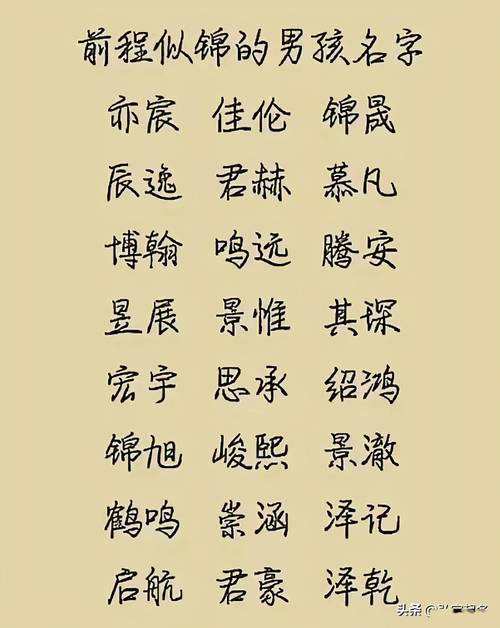 前程似锦的男孩名字
亦宸 佳伦 锦晟
辰逸 君赫 慕凡
博翰 鸣远 腾安
昱展 景惟 其琛
宏宇 思承 绍鸿
锦旭 峻熙 景澈
鹤鸣 崇涵 泽记
启航 君豪 泽乾
头条